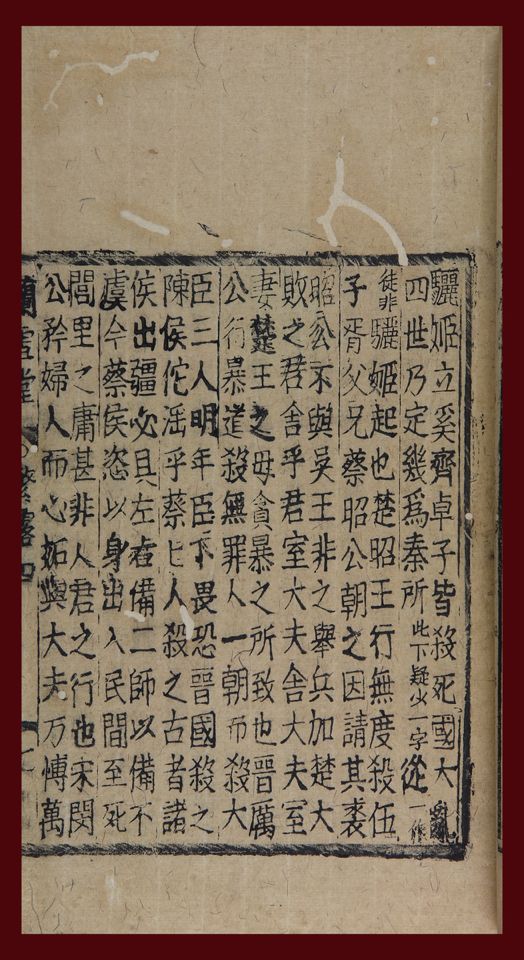 驪姬立奚齊卓子皆殺死國大亂
四世乃定幾爲秦所此下疑少一字從一作
徒非驪姬起也楚昭王行無度殺伍
子胥父兄蔡昭公朝之因請其裘
昭公不與吳王非之舉兵加楚大
敗之君舍乎君室大夫舍大夫室
妻楚王之母貪暴之所致也晉厲
公行暴道殺無罪人一朝而殺大
臣三人明年臣下畏恐晉國殺之
陳侯佗淫乎蔡匕人殺之古者諸
侯出疆必具左右備二師以備不
虞今蔡侯恣以身出入民間至死
閭里之庸甚非人君之行也宋閔
公矜婦人而心妬與大夫万愽萬
蘭雪堂 繁露四